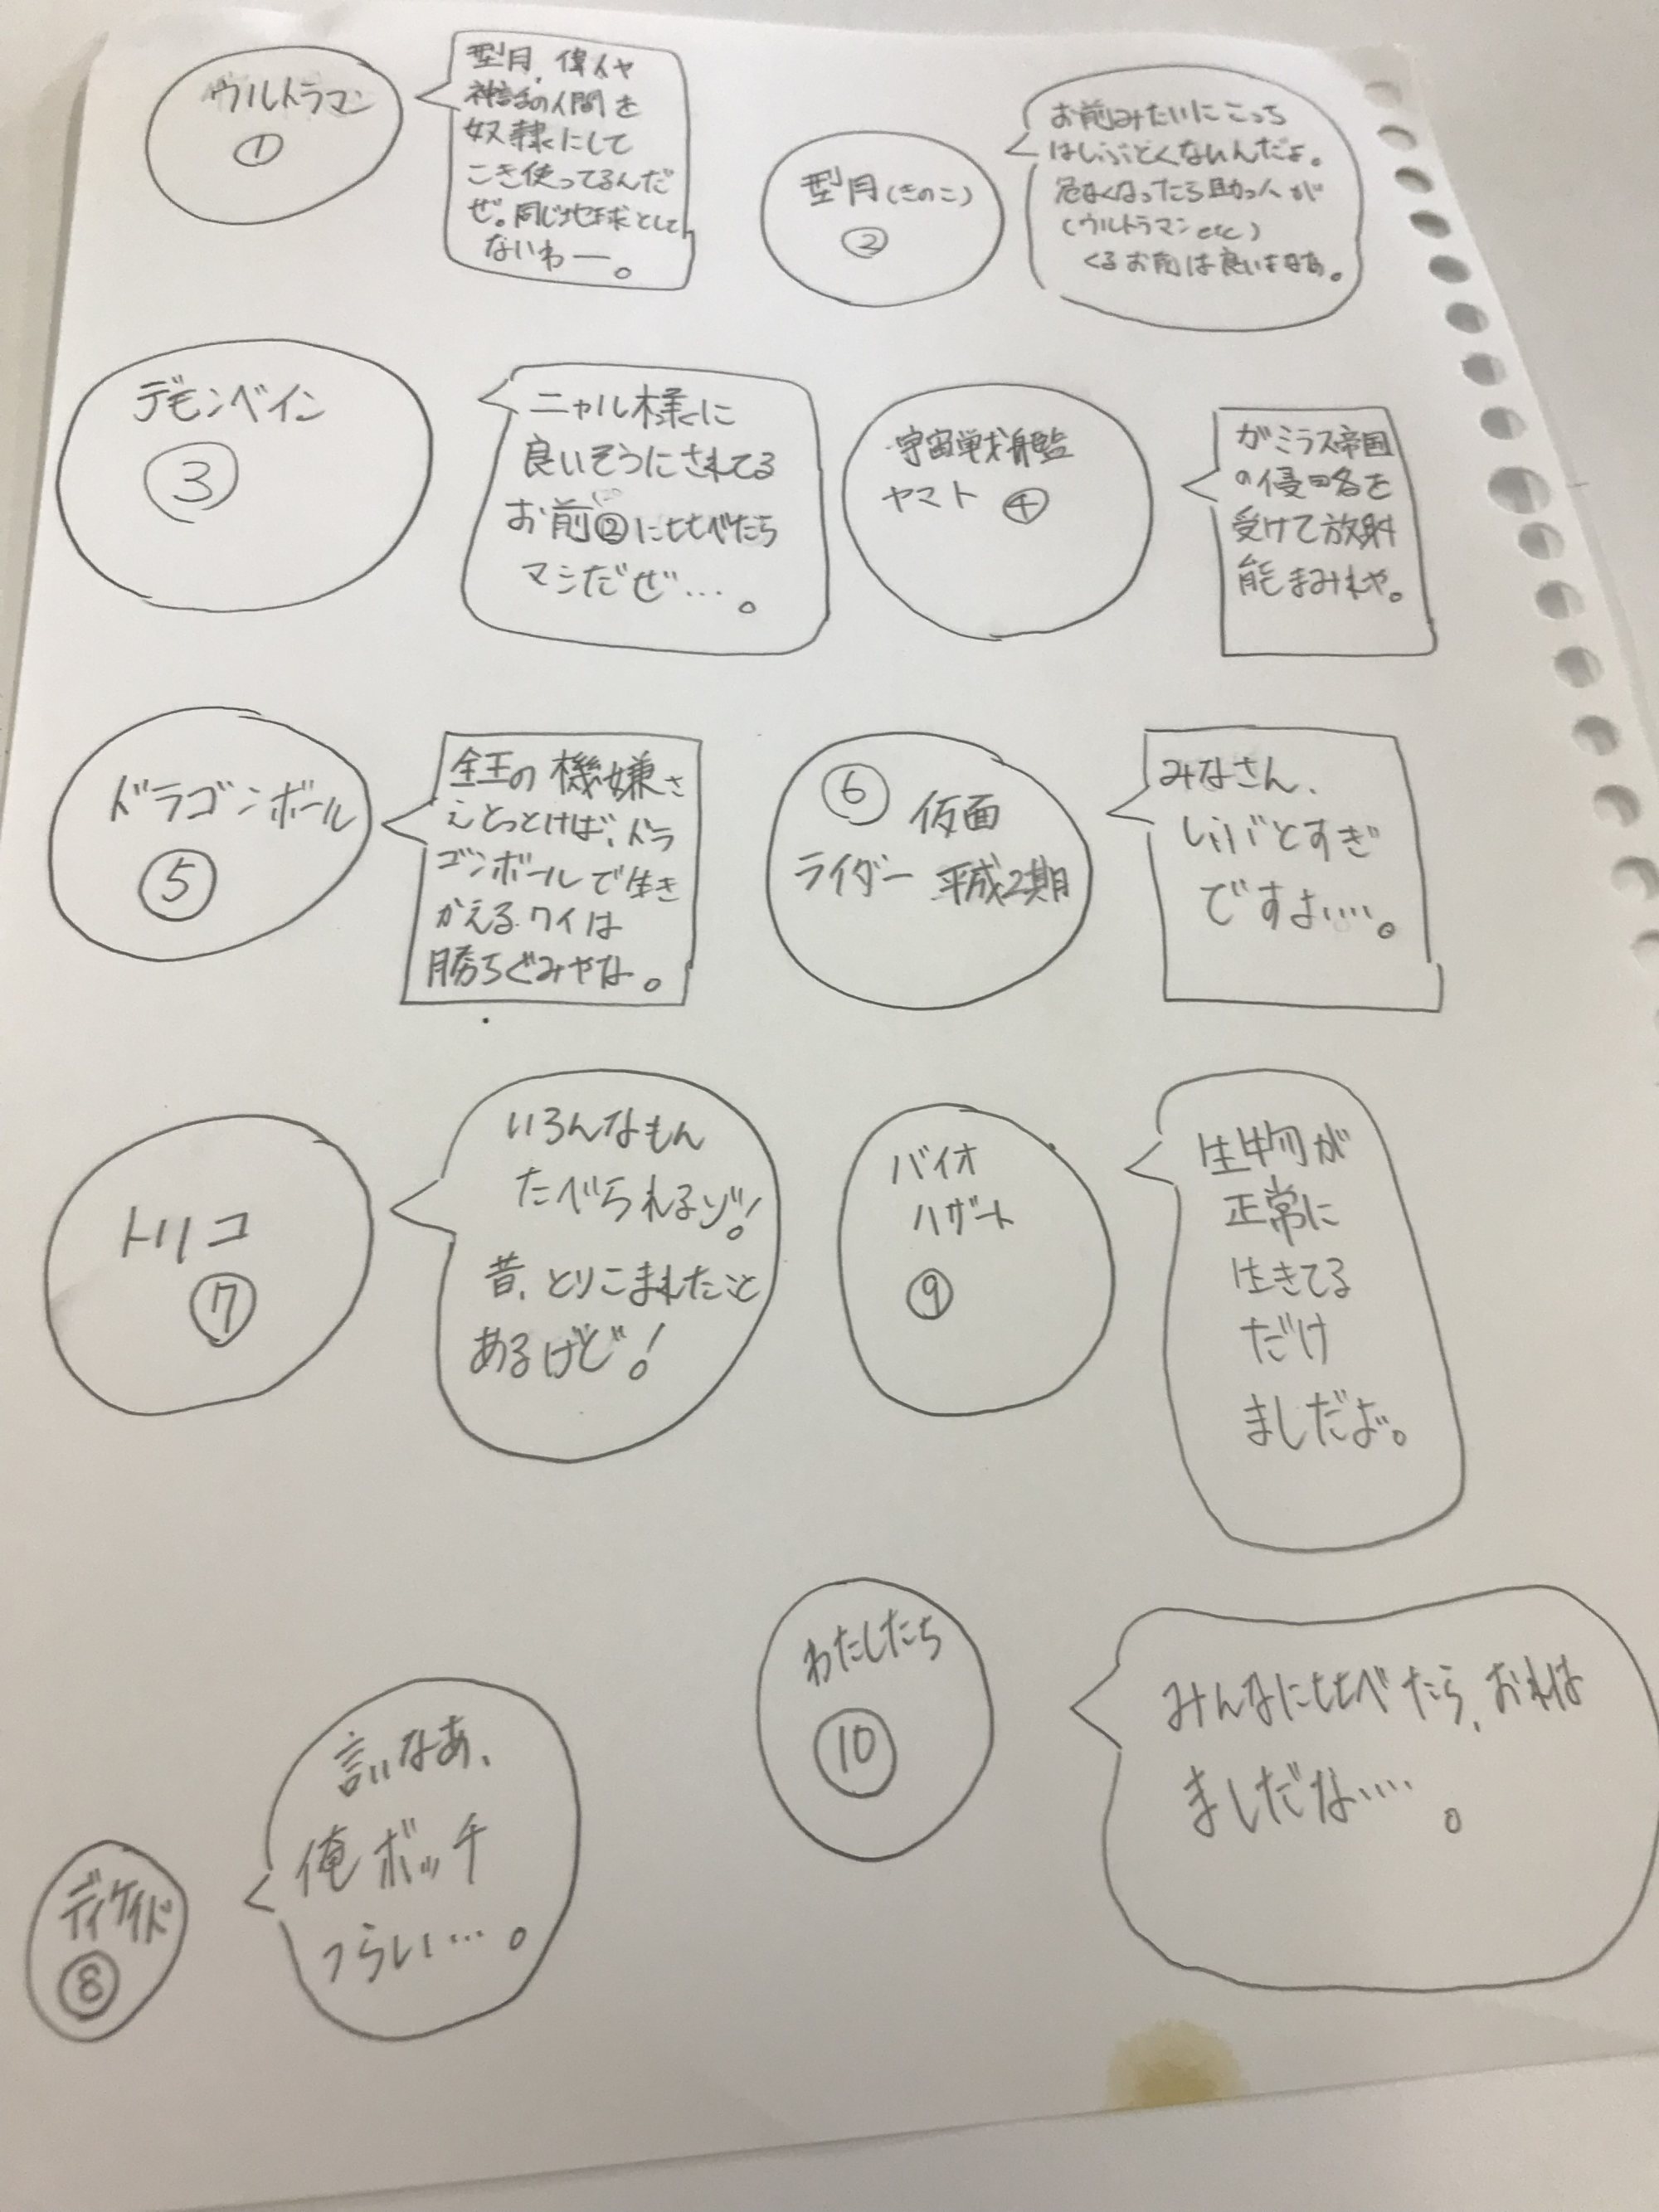 ウルトラマン
①
型月、偉人や
神話の人間を
奴隷にして
こき使ってるんだ
ぜ。同じ地球として
ないわー。
型月(きのこ)
②
お前みたいにこっち
はしぶとくないんだよ。
危なくなったら助っ人が
(ウルトラマンetc)
くるお前は良いよなあ。
デモンベイン
③
ニャル様に
良いそうにされてる
お前②に比べたら
マシだぜ…。
宇宙戦艦
ヤマト ④
ガミラス帝国
の侵略を
受けて放射
能まみれや。
ドラゴンボール
⑤
全王の機嫌さ
えとっとけば、ドラ
ゴンボールで生き
かえるワイは
勝ちぐみやな。
⑥ 仮面
ライダー 平成2期
みなさん、
しぶとすぎ
ですよ…。
トリコ
⑦
いろんなもん
たべられるゾ!
昔、とりこまれたこと
あるけど!
バイオ
ハザート
⑨
生物が
正常に
生きてる
だけ
ましだよ。
ディケイド
⑧
言いなあ、
俺ボッチ
つらい…。
わたしたち
⑩
みんなに比べたら、おれは
ましだな…。